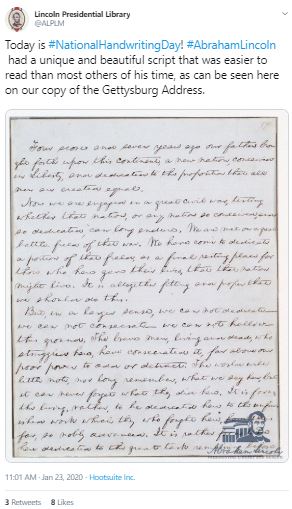 Lincoln Presidential Library
@ALPLM
Today is #NationalHandwritingDay! #AbrahamLincoln
had a unique and beautiful script that was easier to
read than most others of his time, as can be seen here
on our copy of the Gettysburg Address.
Four score and seven years ago our fathers brou-
ght forth upon this continent, a new nation, conceived
in Liberty, and dedicated to the proposition that all
men are created equal.
Now we are engaged in a great civil war, testing
whether that nation, or any nation so conceived, and
so dedicated, can long endure. We are met on a great
battle field of that war. We have come to dedicate
a portion of that field, as a final resting place for
those who here gave their lives, that that nation
might live. It is altogether fitting and proper that
we should do this.
But, in a larger sense, we can not dedicate
we can not consecrate we can not hallow
this ground. The brave men, living and dead, who
struggled here, have consecrated it, far above our
poor power to add or detract. The world will
little note, nor long remember, what we say here, but
it can never forget what they did here. It is for us
the living, rather, to be dedicated here to the
work which they who fought here, have, thus
far, so nobly advanced. It is rather
here dedicated to the great task
Abraham Lincoln
11:01 AM · Jan 23, 2020 · Hootsuite Inc.
3 Retweets 8 Likes